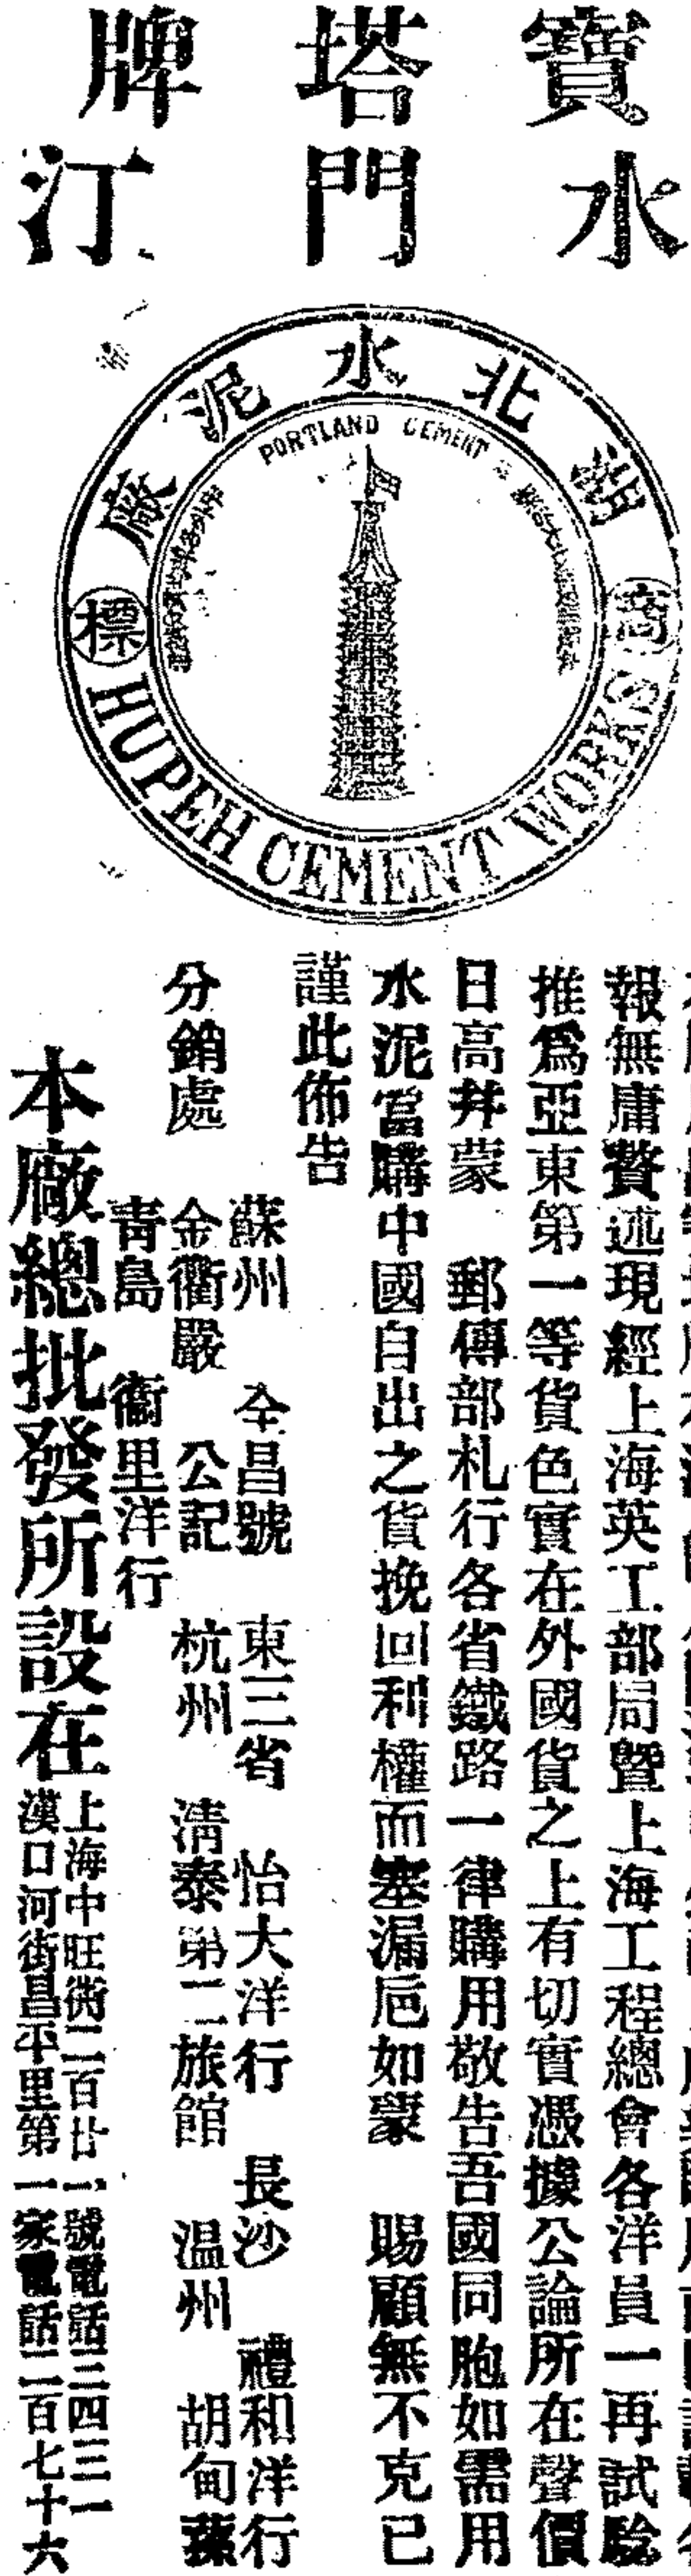 寶塔牌
水門汀
湖北水泥廠
PORTLAND CEMENT
商標
HUPEH CEMENT WORKS
報無庸贅述現經上海英工部局暨上海工程總會各洋員一再試驗
推爲亞東第一等貨色實在外國貨之上有切實憑據公論所在聲價
日高并蒙 郵傳部札行各省鐵路一律購用敬告吾國同胞如需用
水泥當購中國自出之貨挽回利權而塞漏巵如蒙 賜顧無不克已
謹此佈告
分銷處
蘇州 仝昌號 東三省 怡大洋行 長沙 禮和洋行
金衢嚴 公記 杭州 清泰第二旅館 温州 胡甸蓀
青島 衞里洋行
本廠總批發所設在
上海中旺街二百廿一號電話三四三一
漢口河街昌平里第一家電話二百七十六